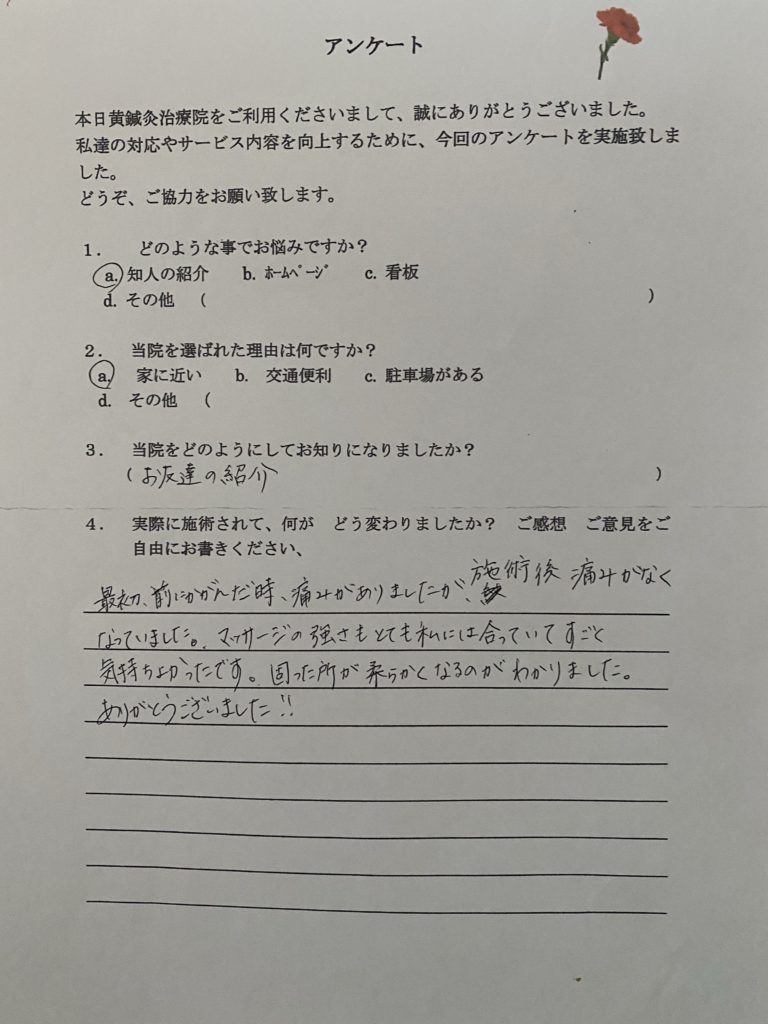 アンケート
本日黄鍼灸治療院をご利用くださいまして、誠にありがとうございました。
私達の対応やサービス内容を向上するために、今回のアンケートを実施致しま
した。
どうぞ、ご協力をお願い致します。
1． どのような事でお悩みですか？
a. 知人の紹介 b. ﾎｰﾑﾍﾟｰｼﾞ c. 看板
d. その他 ( )
2． 当院を選ばれた理由は何ですか？
a. 家に近い b. 交通便利 c. 駐車場がある
d. その他 (
3． 当院をどのようにしてお知りになりましたか？
( お友達の紹介 )
4． 実際に施術されて、何が どう変わりましたか？ ご感想 ご意見をご
自由にお書きください、
最初、前にかがんだ時、痛みがありましたが、施術後 痛みがなく
なっていました。マッサージの強さもとても私には合っていてすごく
気持ちよかったです。固った所が柔らかくなるのがわかりました。
ありがとうございました!!